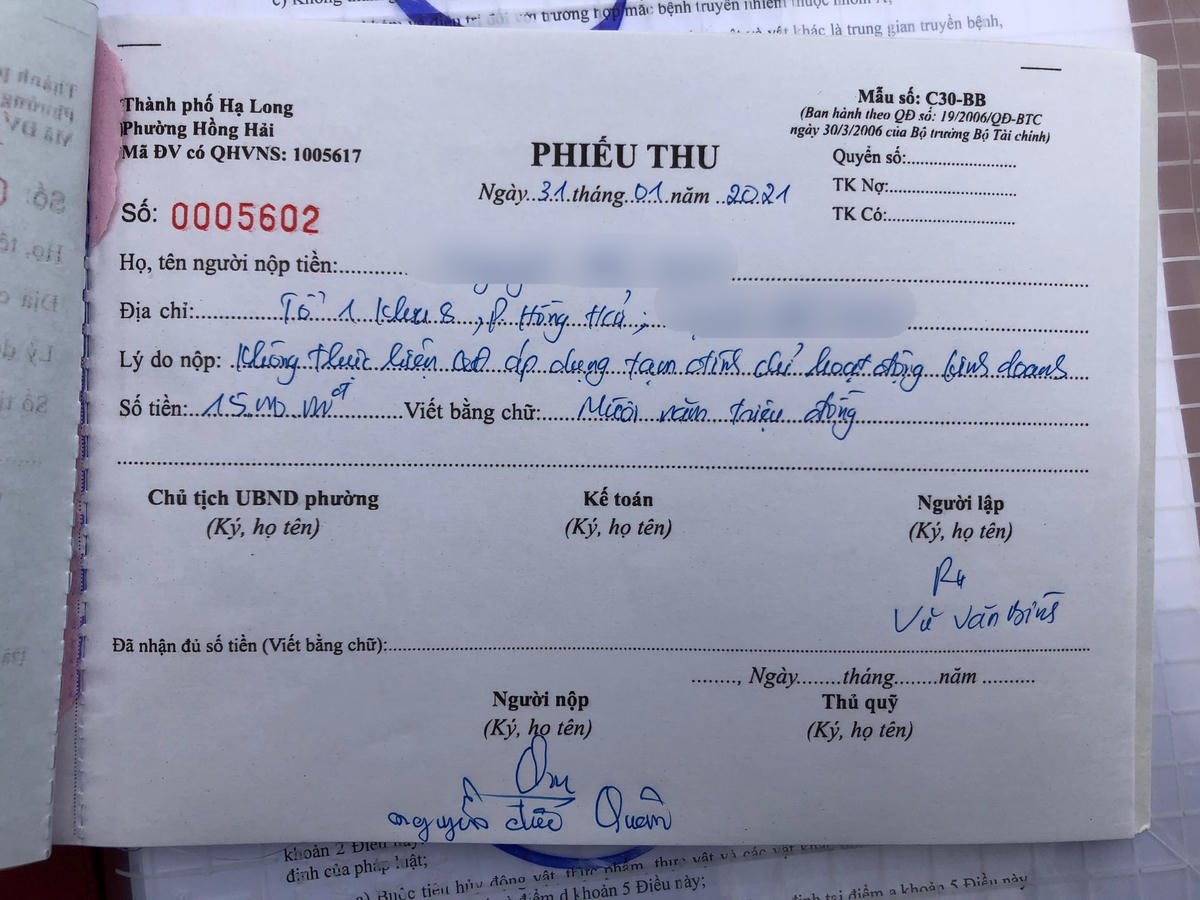 c) Không
điều trị đối với trường hợp mắc bệnh truyền nhiễm thuộc nhóm A,
vật khác là trung gian truyền bệnh,
Thành phố Hạ Long
Phường Hồng Hải
Mã ĐV có QHVNS: 1005617
Số: 0005602
PHIẾU THU
Ngày..31.tháng..01.năm ..2021
Mẫu số: C30-BB
(Ban hành theo QĐ số: 19/2006/QĐ-BTC
ngày 30/3/2006 của Bộ trưởng Bộ Tài chính)
Quyển số:
TK Nợ:
TK Có:
Họ, tên người nộp tiền:
Địa chỉ: Tổ 1 Khu 8, P. Hồng Hải;
Lý do nộp: Không thực hiện áp dụng tạm đình chỉ hoạt động kinh doanh
Số tiền: 15.000.000đ Viết bằng chữ: Mười năm triệu đồng
Chủ tịch UBND phường
(Ký, họ tên)
Kế toán
(Ký, họ tên)
Người lập
(Ký, họ tên)
Vũ Văn Bình
Đã nhận đủ số tiền (Viết bằng chữ):
........, Ngày........tháng........năm ..........
Người nộp
(Ký, họ tên)
Nguyễn Quân
Thủ quỹ
(Ký, họ tên)
khoản 2 Điều này;
định của pháp luật;
Buộc tiêu hủy động vật, thực phẩm, thực vật và các vật khác
điểm d khoản 5 Điều này;
định tại điểm a khoản 5 Điều này